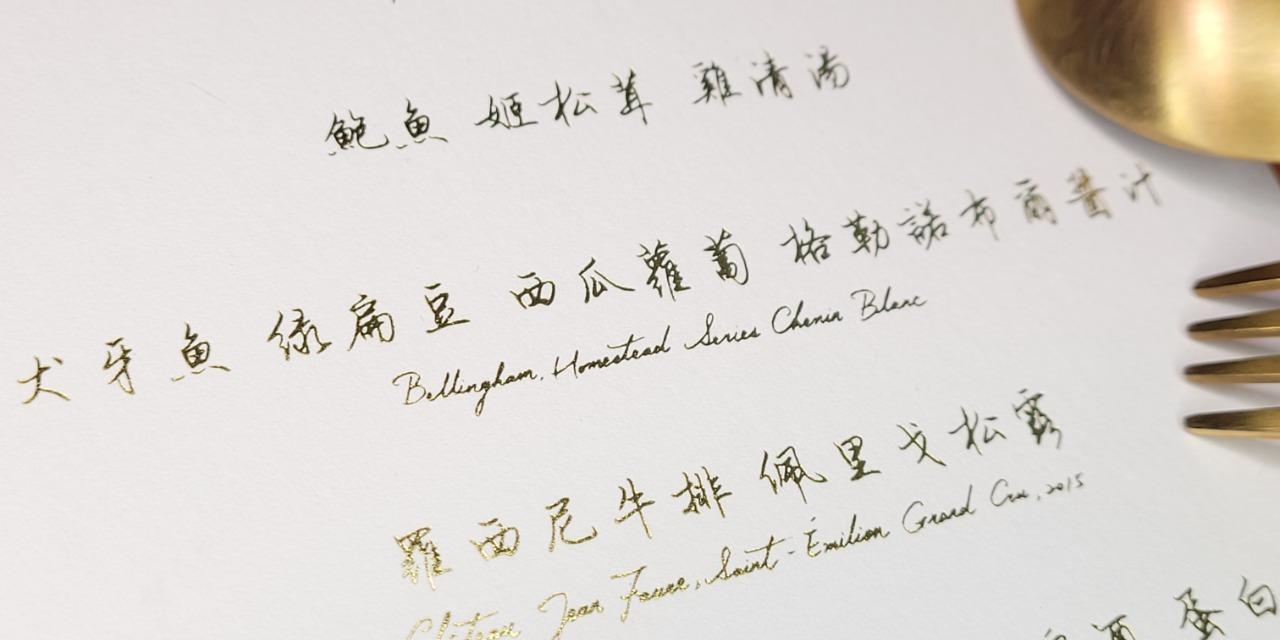 鮑魚 姬松茸 雞清湯
犬牙魚 綠扁豆 西瓜蘿蔔 格勒諾布爾醬汁
Bellingham, Homestead Series Chenin Blanc
羅西尼牛排 佩里戈松露
Château Jean Faure, Saint-Émilion Grand Cru, 2015
酒 蛋白